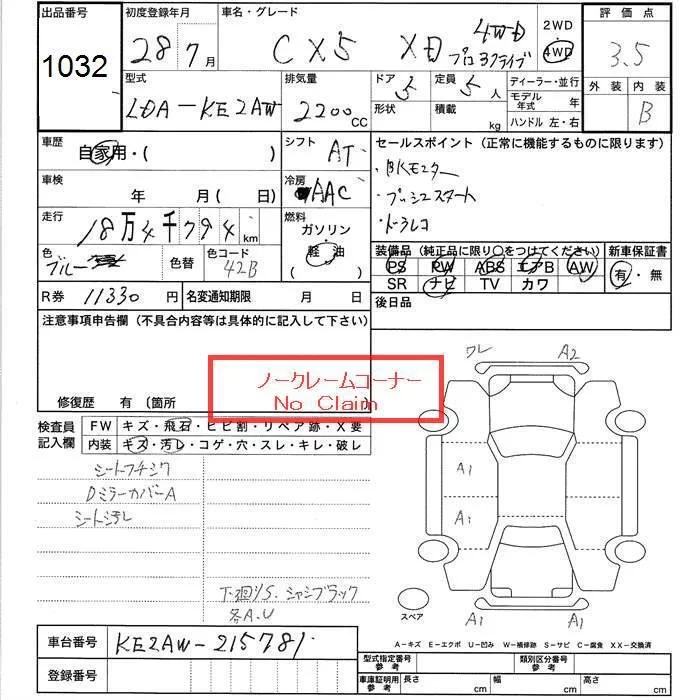 出品番号 初度登録年月 車名・グレード 2WD 評価点
1032 28年7月 CX5 XD 4WD プロアクティブ 4WD 3.5
型式 排気量 ドア 定員 ディーラー・並行 外装 内装
LDA-KE2AW 2200CC 5 5人 モデル年式 年 B
形状 積載 kg ハンドル 左・右
車歴 シフト セールスポイント (正常に機能するものに限ります)
自家用・( ) AT
・BKモニター
車検 冷房
年 月(日) AAC
・プッシュスタート
走行 燃料
18万4千794km ガソリン
・ドラレコ
色 色替 色コード 軽油
ブルー 42B ( )
装備品 (純正品に限り〇をつけてください) 新車保証書
PS PW ABS エアB AW 有・無
SR ナビ TV カワ
R券 11330円 名変通知期限 月 日
後日品
注意事項申告欄 (不具合内容等は具体的に記入して下さい)
ノークレームコーナー
No Claim
修復歴 有 (箇所
ワレ A2
検査員記入欄 FW キズ・飛石・ヒビ割・リペア跡・X要
内装 キズ・汚レ・コゲ・穴・スレ・キレ・破レ
シートフチシワ
DミラーカバーA
シート汚レ
A1
A1
下廻りS.シャシブラック
各A.U
スペア
A1 A1
車台番号 KE2AW-215781
A-キズ E-エクボ U-凹み W-補修跡 S-サビ C-腐食 XX-交換済
登録番号
型式指定番号 参考 類別区分番号 参考
車庫証明用 参考 長さ cm 幅 cm 高さ cm